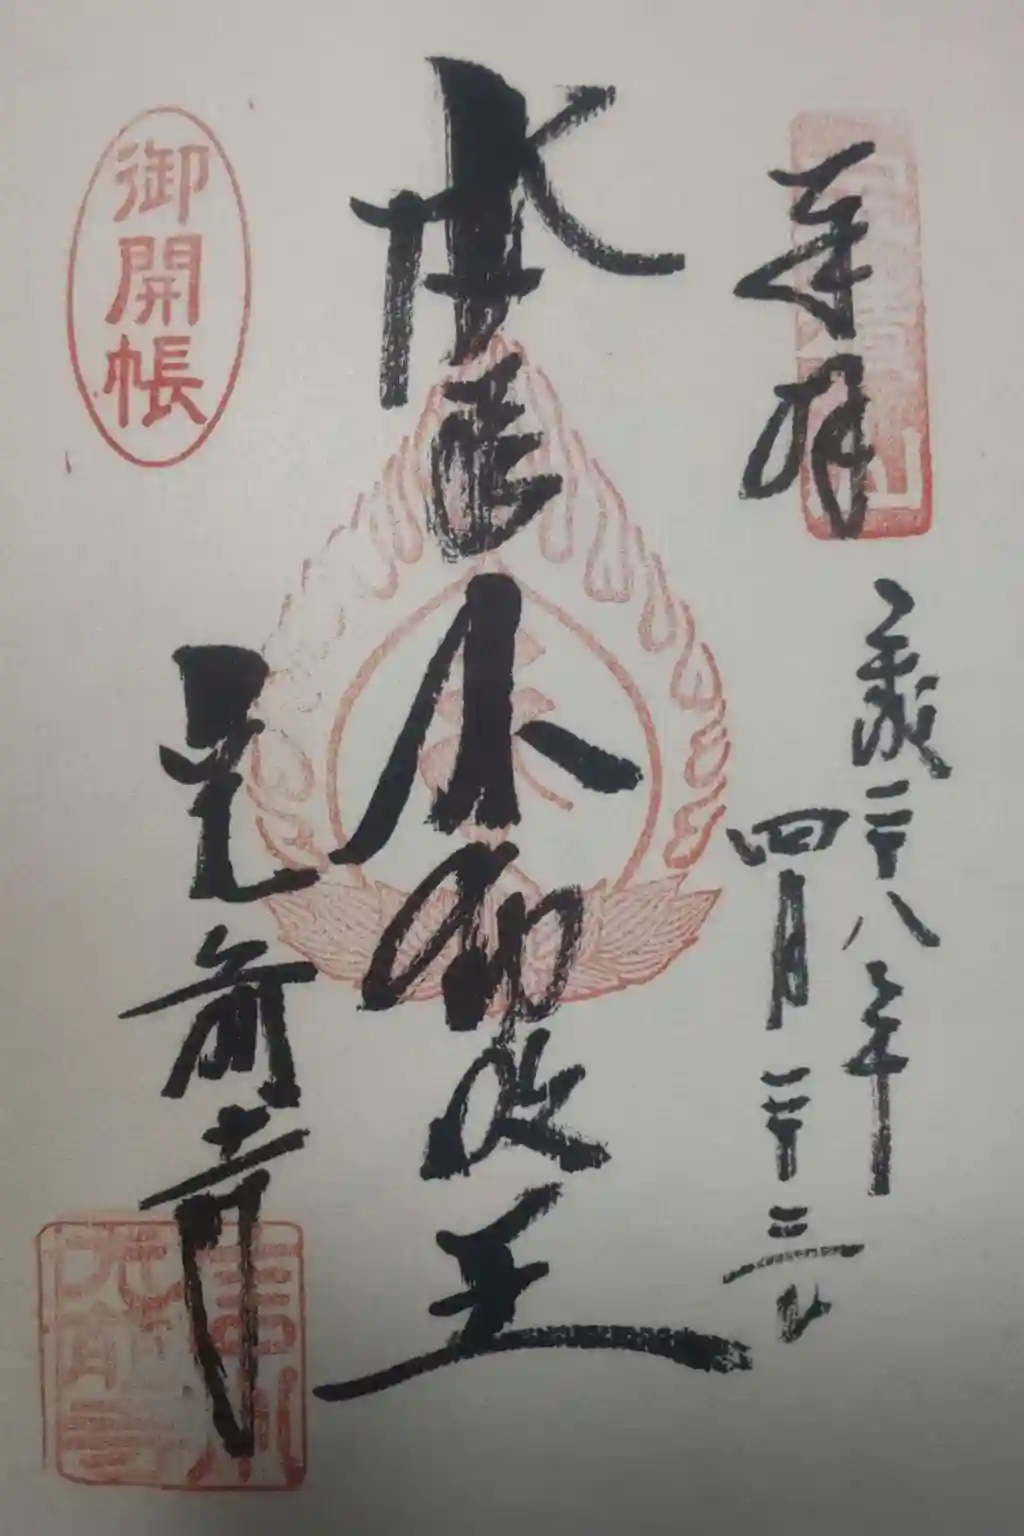 奉拝
平成二十八年
四月二十三日
本尊不動明王
御開帳
光前寺